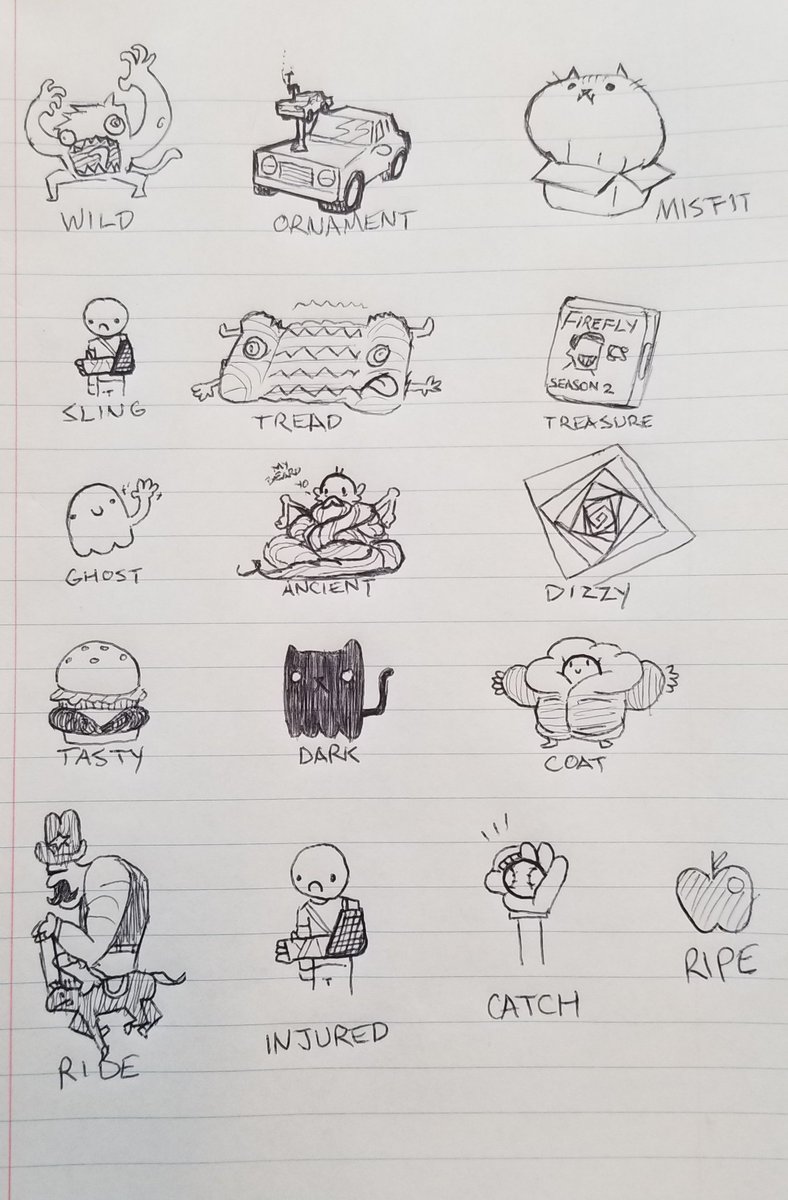 WILD
ORNAMENT
MISFIT
SLING
TREAD
FIREFLY
SEASON 2
TREASURE
GHOST
MY
BEARD
YO
ANCIENT
DIZZY
TASTY
DARK
COAT
RIDE
INJURED
CATCH
RIPE